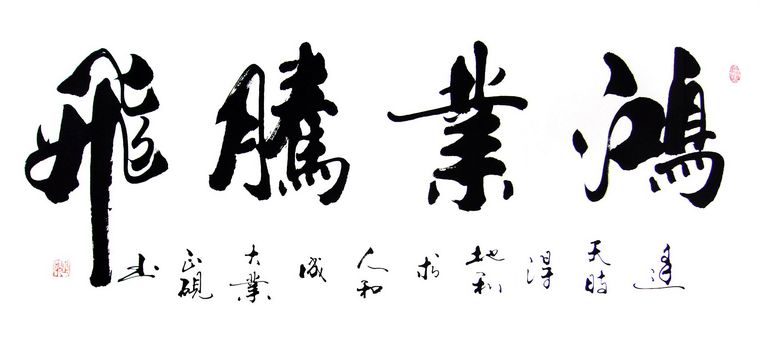 鴻業騰飛
逢天時得地利人和成大業正硯書